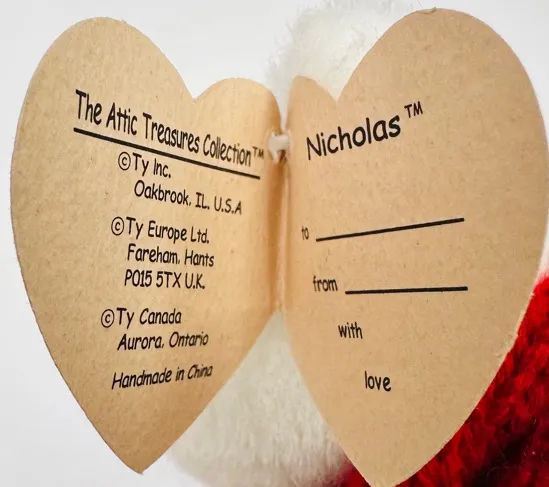 The Attic Treasures Collection™
©Ty Inc.
Oakbrook, IL. U.S.A
©Ty Europe Ltd.
Fareham, Hants
PO15 5TX U.K.
©Ty Canada
Aurora, Ontario
Handmade in China
Nicholas™
to
from
with
love